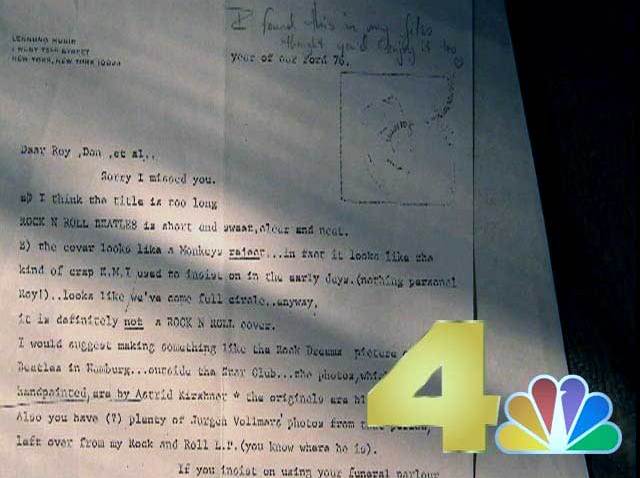 I found this in my files
thought you'd enjoy it too
LENNONO MUSIC
1 WEST 72ND STREET
NEW YORK, NEW YORK 10023
year of our Ford 76.
Daar Roy ,Don ,et al,.
Sorry I missed you.
I think the title is too long
ROCK N ROLL BEATLES is short and sweet,clear and neat.
B) the cover looks like a Monkeys reject...in fact it looks like the
kind of crap E.M.I used to insist on in the early days.(nothing personal
Roy!)..looks like we've come full circle..anyway,
it is definitely not a ROCK N ROLL cover.
I would suggest making something like the Rock Dreams picture
Beatles in Hamburg...outside the Star Club...the photos,
handpainted,are by Astrid Kirshner * the originals are
Also you have (?) plenty of Jurgen Vollmars' photos from
left over from my Rock and Roll L.P.(you know where he is).
If you insist on using your funeral parlour
4